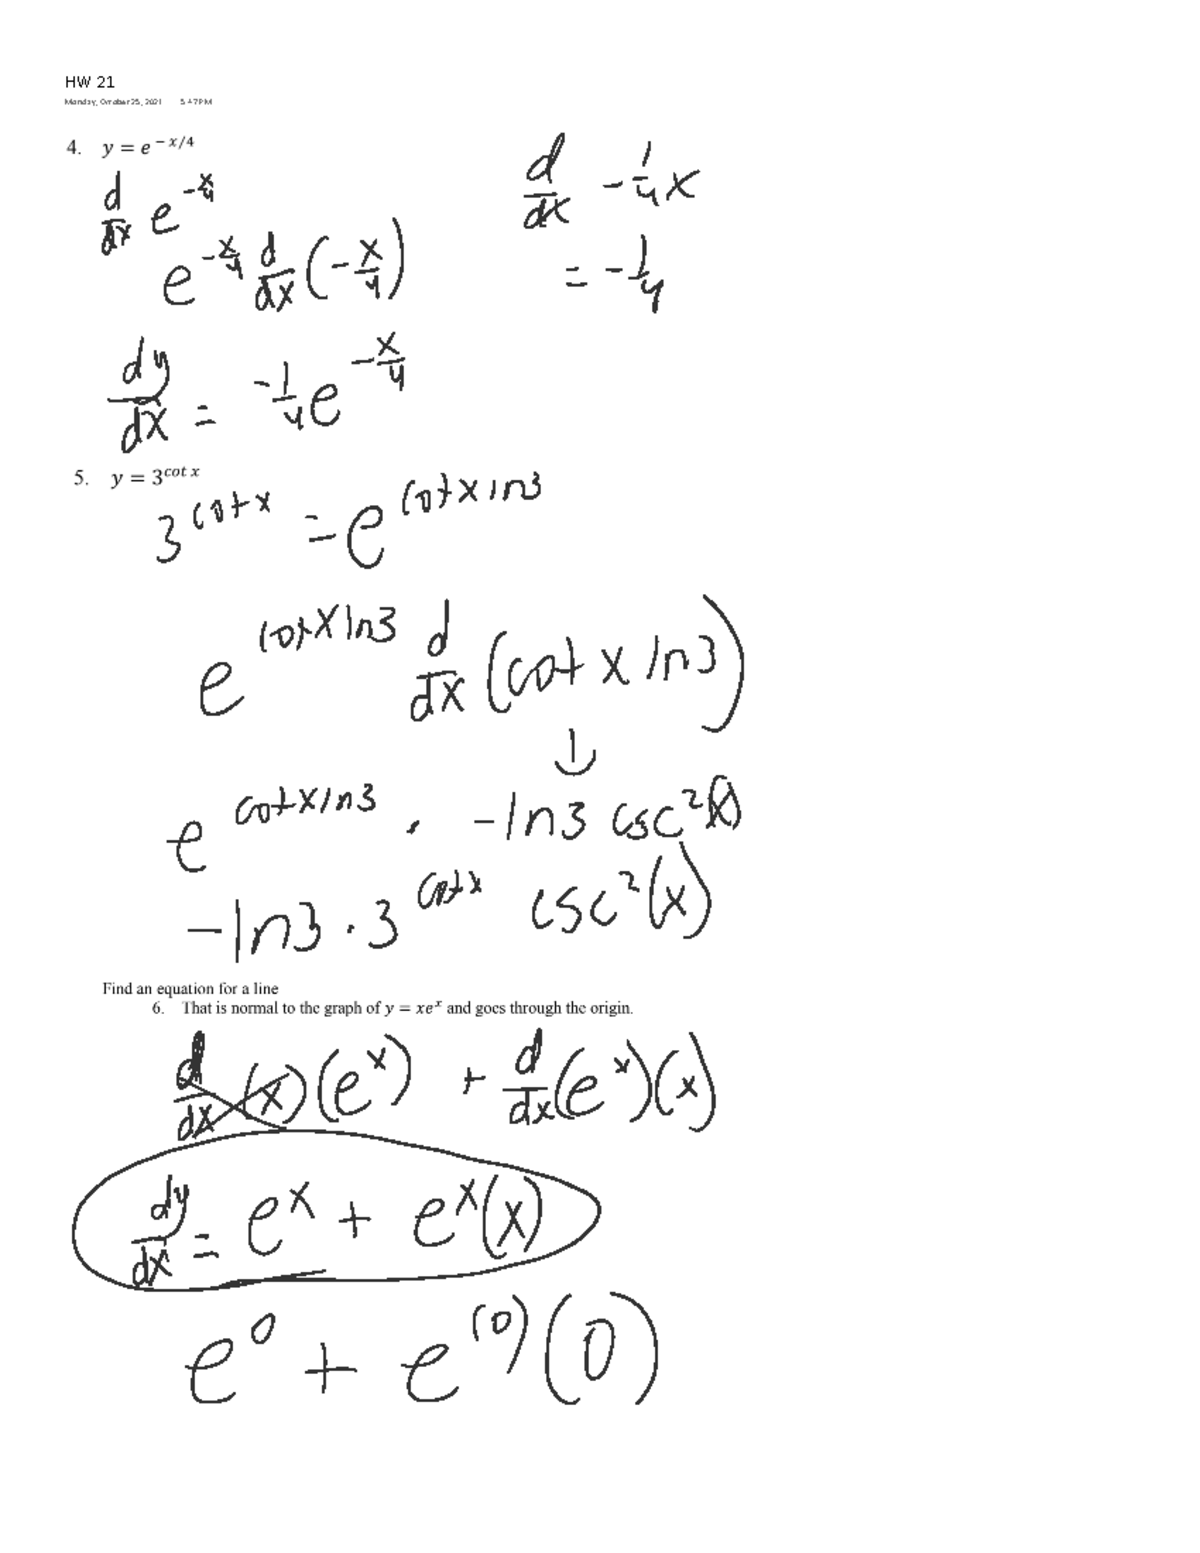 HW 21
Monday, October 25, 2021 5:47 PM
4. y = e^{-x/4}
d/dx e^{-x/4}
d/dx -1/4 x
e^{-x/4} d/dx (-x/4)
= -1/4
dy/dx = -1/4 e^{-x/4}
5. y = 3^{cot x}
3^{cot x} = e^{cot x ln3}
e^{cot x ln3} d/dx (cot x ln3)
↓
e^{cot x ln3} · -ln3 csc²(x)
-ln3 · 3^{cot x} csc²(x)
Find an equation for a line
6. That is normal to the graph of y = xe^x and goes through the origin.
d/dx (x)(e^x) + d/dx (e^x)(x)
dy/dx = e^x + e^x(x)
e^0 + e^{(0)}(0)